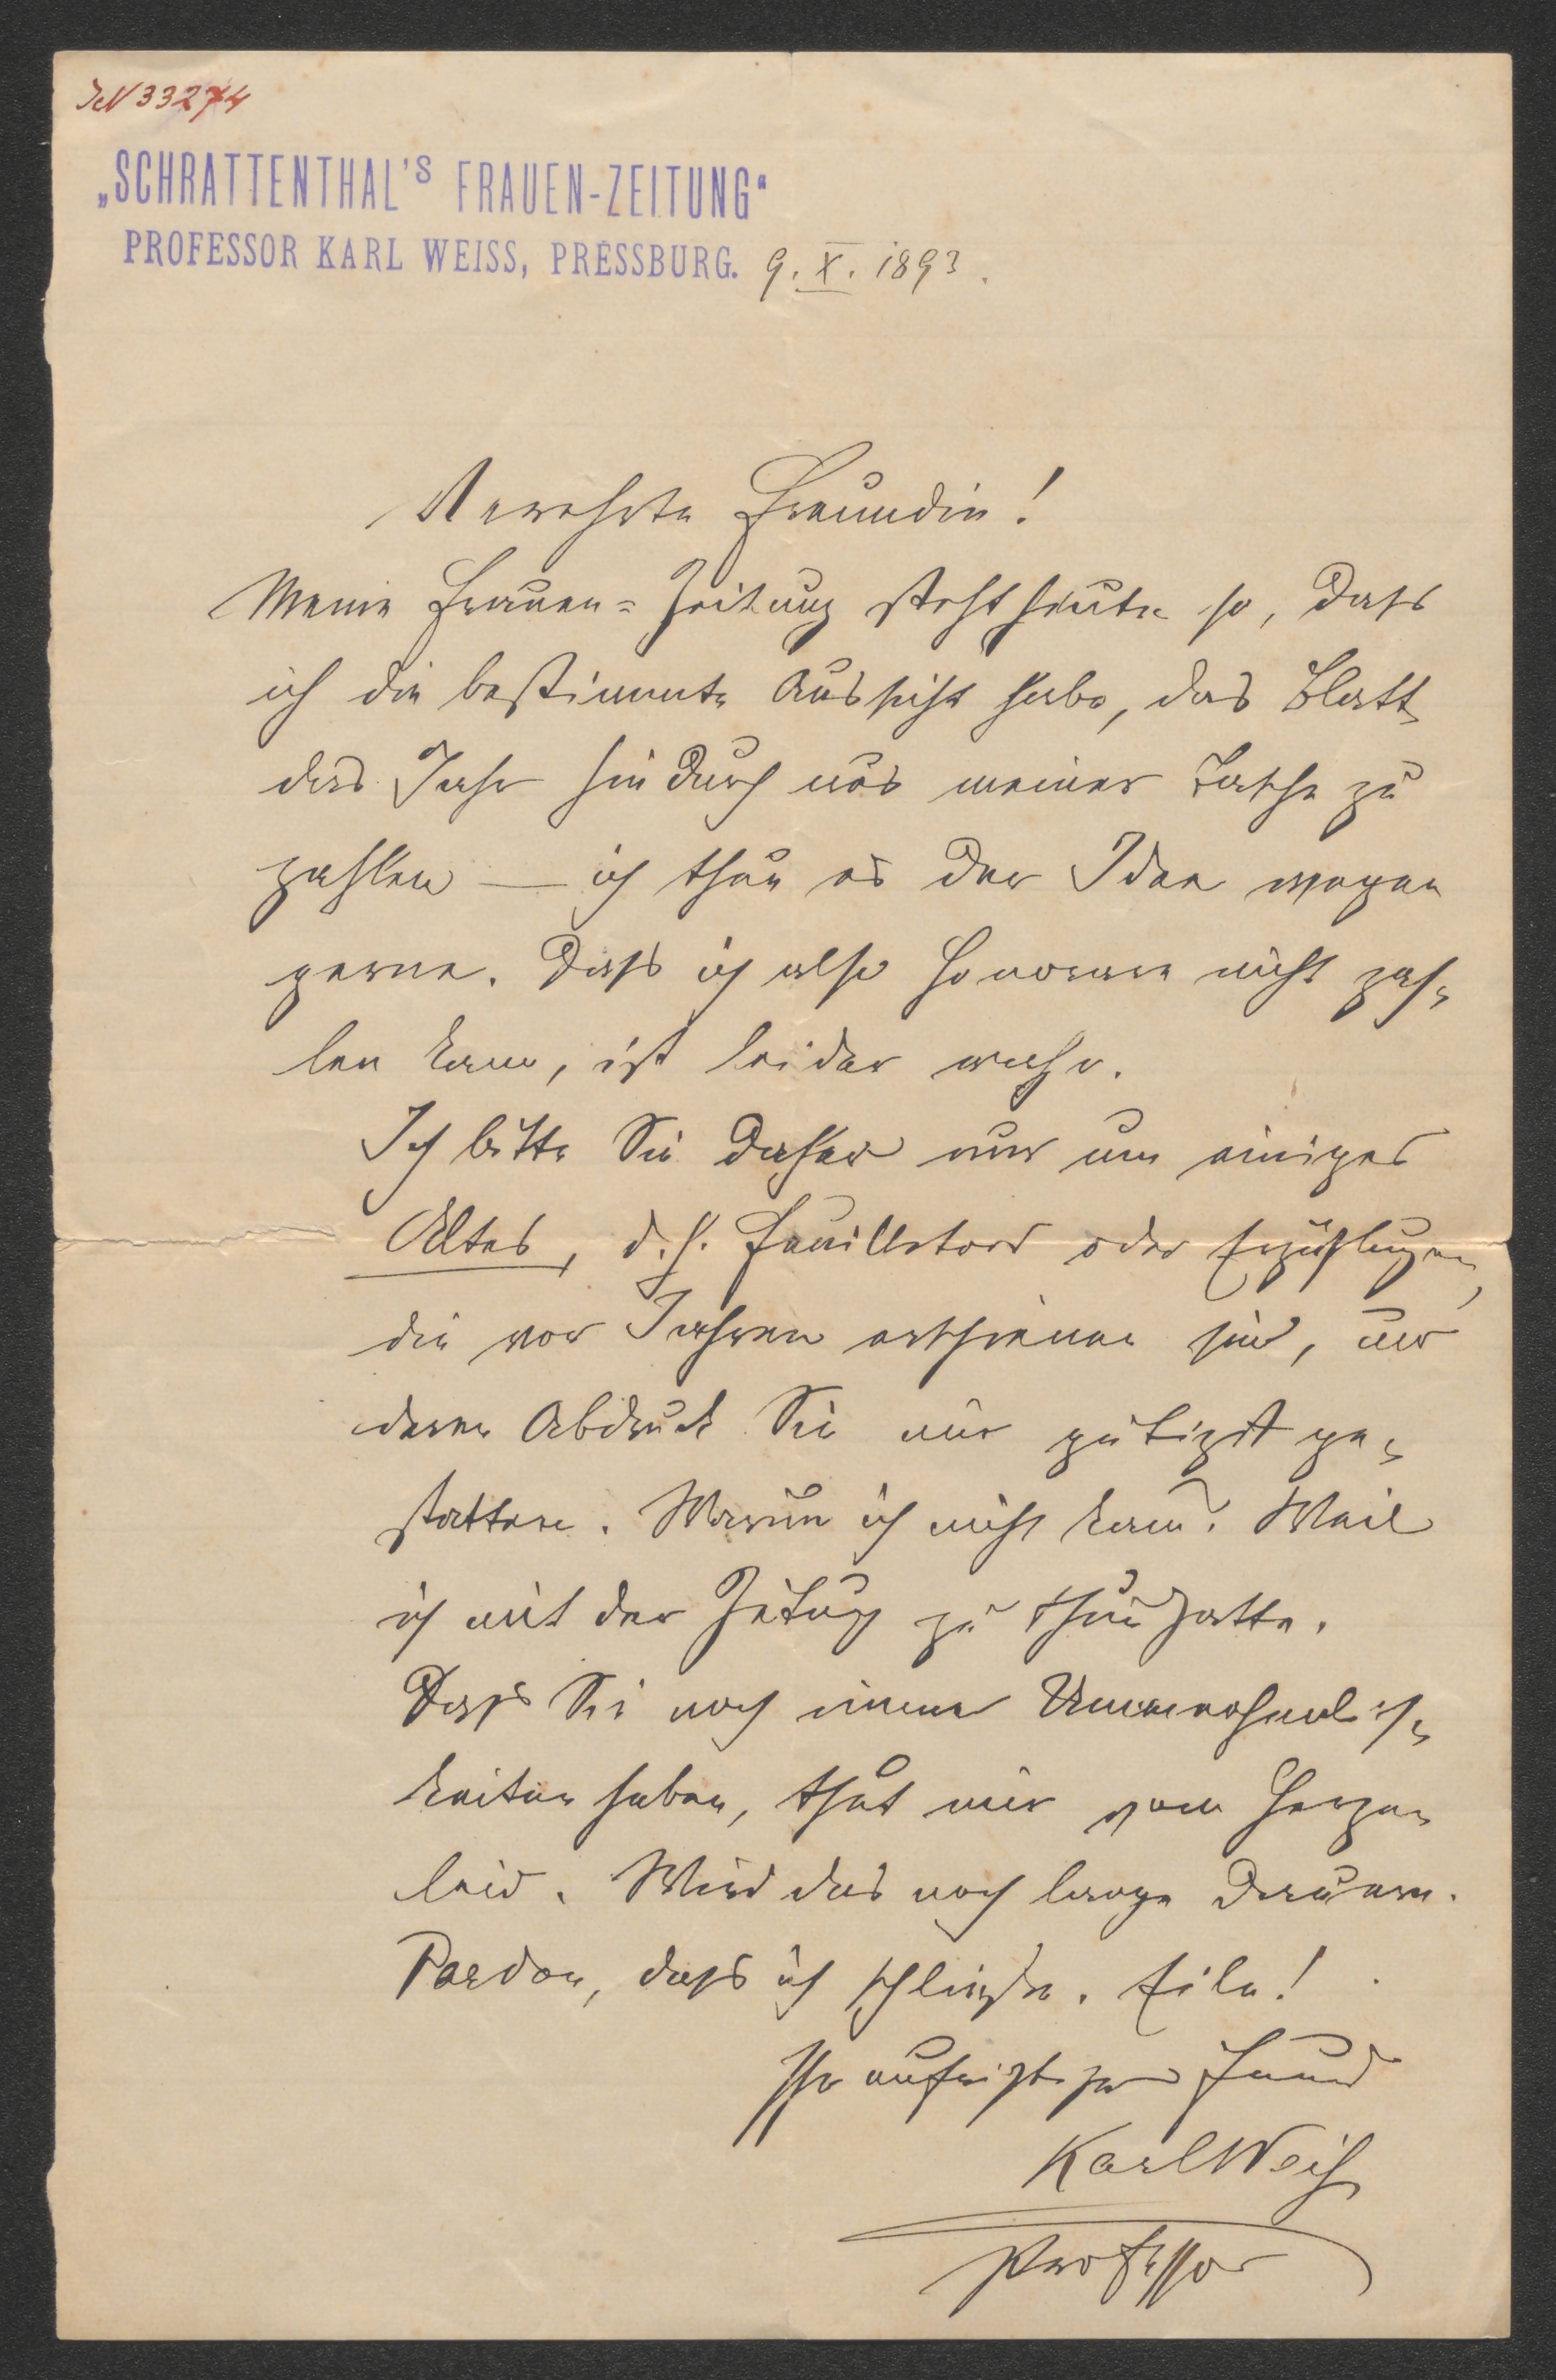 IN 33274
„SCHRATTENTHAL'S FRAUEN-ZEITUNG“
PROFESSOR KARL WEISS, PRESSBURG. 9. X. 1893.
Verehrte Freundin!
Meine Frauen-Zeitung steht heute so, daß
ich die bestimmte Aussicht habe, das Blatt
das Jahr hindurch aus meiner Tasche zu
zahlen — ich thue es der Idee wegen
gerne. Daß ich also Honorare nicht zah-
len kann, ist leider wahr.
Ich bitte Sie daher nur um einiges
Altes, d. h. Feuilletons oder Erzählungen,
die vor Jahren erschienen sind, und
deren Abdruck Sie mir gütigst ge-
statten. Warum ich nicht kam? Weil
ich mit der Zeitung zu thun hatte.
Daß Sie noch immer Unannehmlich-
keiten haben, thut mir vom Herzen
leid. Wird das noch lange dauern.
Pardon, daß ich schließe. Eile!
Ihr aufrichtiger Freund
Karl Weiß
Professor